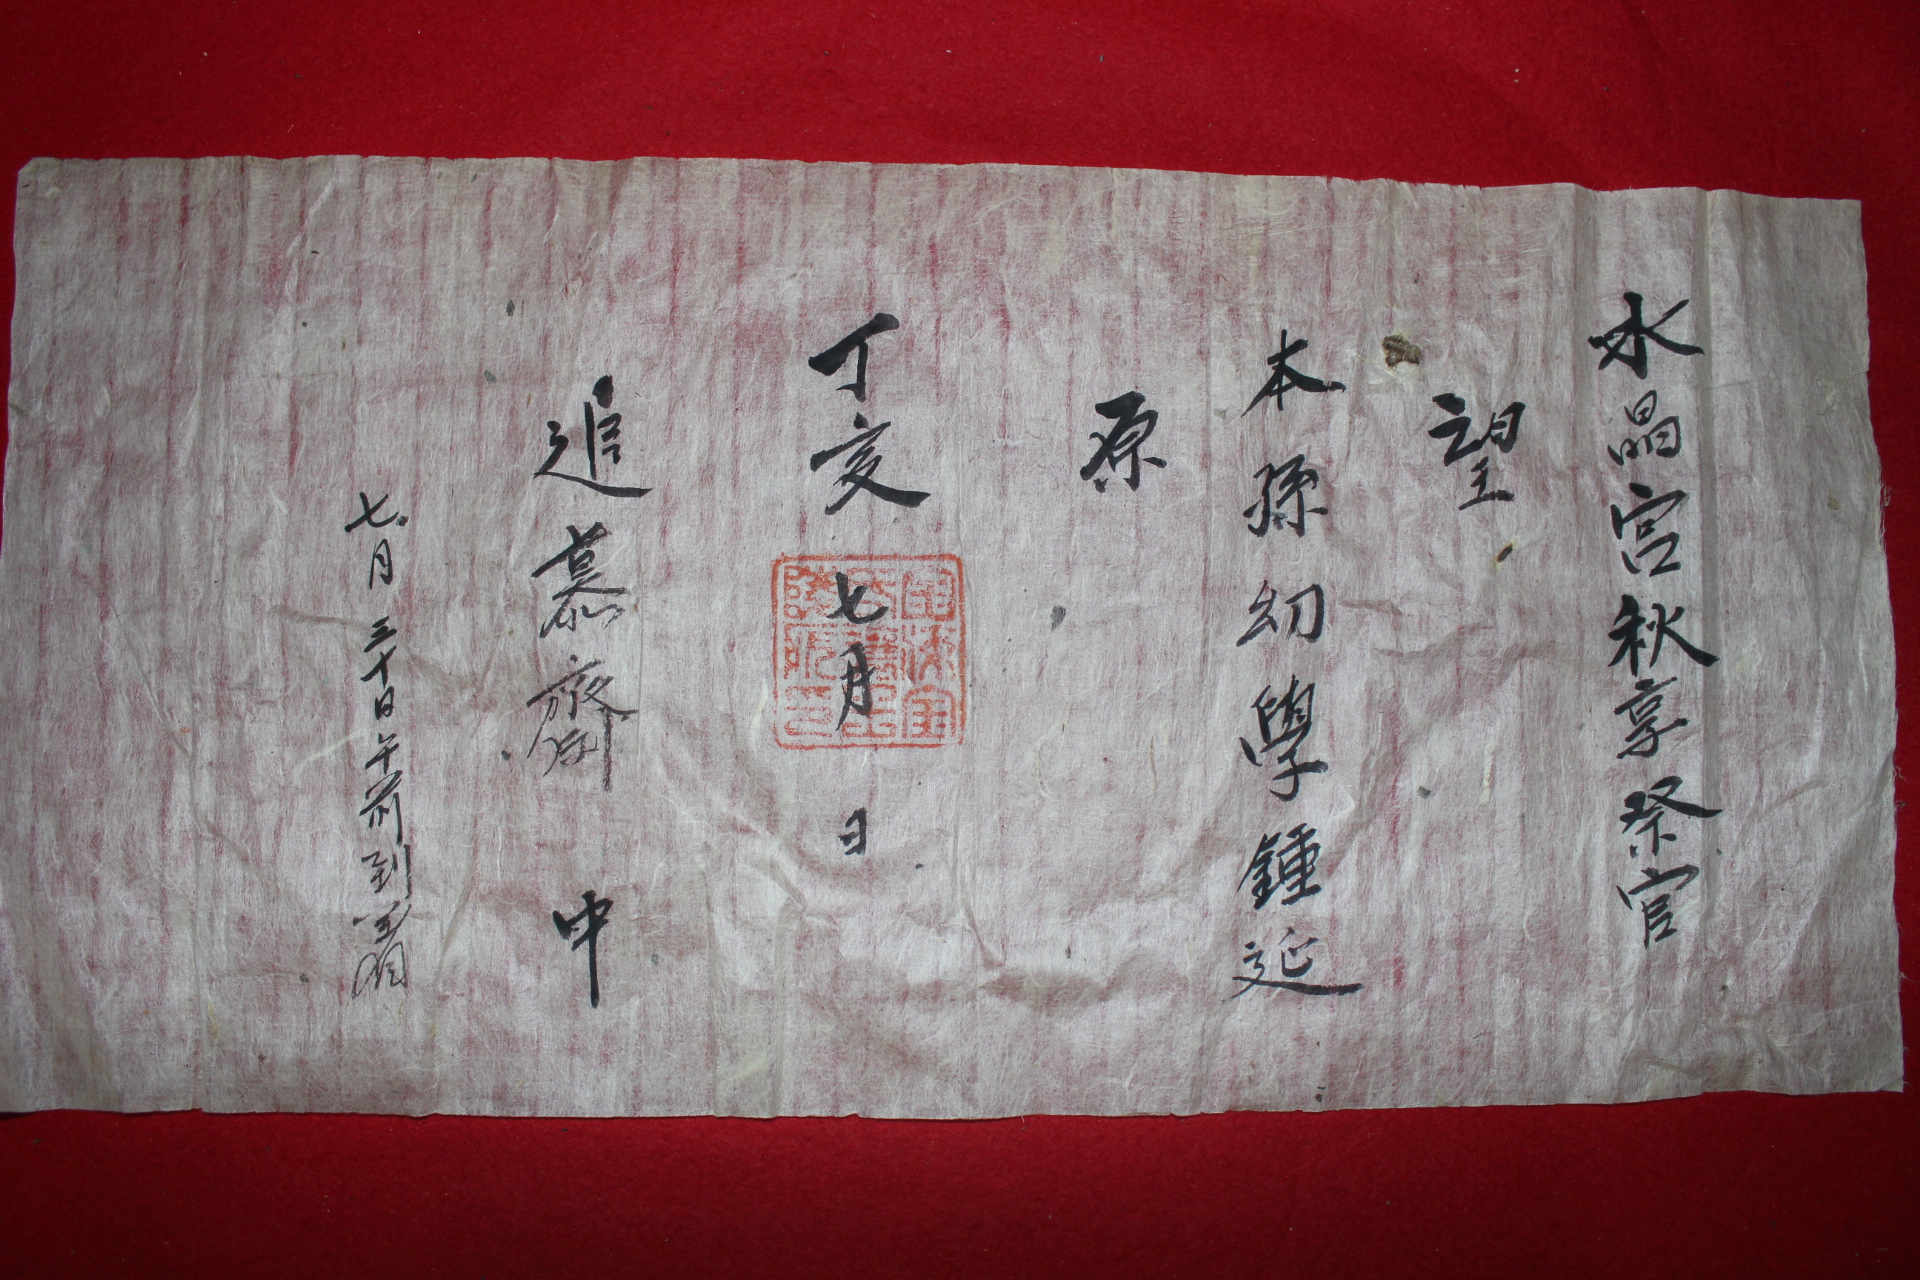 水晶宮秋享祭官
望
本孫幼學鍾延
原
丁亥 七月 日
追慕齋 中
七月三十日午前到